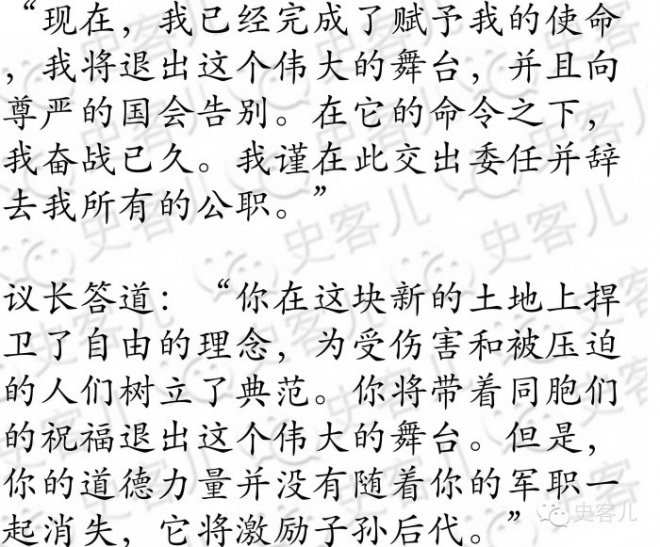 “现在，我已经完成了赋予我的使命
，我将退出这个伟大的舞台，并且向
尊严的国会告别。在它的命令之下，
我奋战已久。我谨在此交出委任并辞
去我所有的公职。”
议长答道：“你在这块新的土地上捍
卫了自由的理念，为受伤害和被压迫
的人们树立了典范。你将带着同胞们
的祝福退出这个伟大的舞台。但是，
你的道德力量并没有随着你的军职一
起消失，它将激励子孙后代。”
史客儿